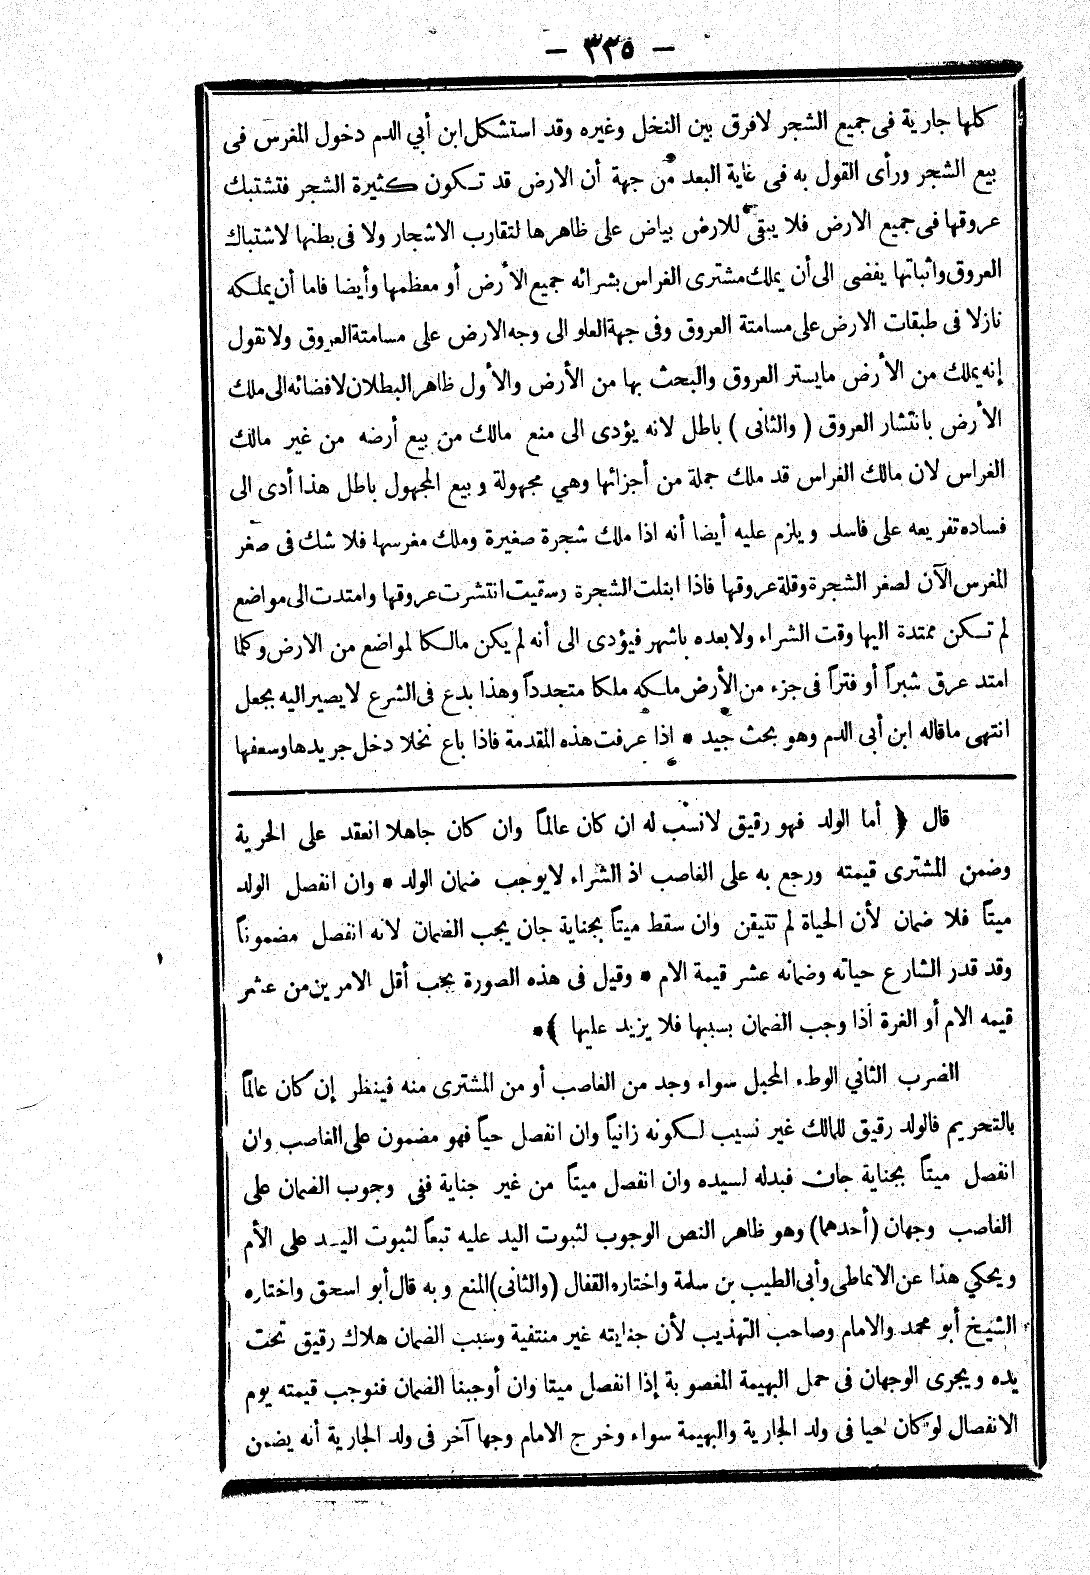 — ٣٣٥ —
كلها جارية فى جميع الشجر لافرق بين النخل وغيره وقد استشكل ابن أبي الدم دخول المغرس فى
بيع الشجر ورأى القول به فى غاية البعد من جهة أن الارض قد تكون كثيرة الشجر فتشتبك
عروقها فى جميع الارض فلا يبقى للارض بياض على ظاهرها لتقارب الاشجار ولا فى بطنها لاشتباك
العروق واثباتها يفضى الى أن يملك مشترى الغراس بشرائه جميع الأرض أو معظمها وأيضا فاما أن يملكه
نازلا فى طبقات الارض على مسامتة العروق وفى جهة العلو الى وجه الارض على مسامتة العروق ولا نقول
إنه يملك من الأرض مايستر العروق والبحث بها من الأرض والأول ظاهر البطلان لافضائه الى ملك
الأرض بانتشار العروق ( والثانى ) باطل لانه يؤدى الى منع مالك من بيع أرضه من غير مالك
الغراس لان مالك الغراس قد ملك جملة من أجزائها وهي مجهولة وبيع المجهول باطل هذا أدى الى
فساده تفريعه على فاسد ويلزم عليه أيضا أنه اذا ملك شجرة صغيرة وملك مغرسها فلا شك فى صغر
المغرس الآن لصغر الشجرة وقلة عروقها فاذا ابتلت الشجرة وسقيت انتشرت عروقها وامتدت الى مواضع
لم تكن ممتدة اليها وقت الشراء ولا بعده باشهر فيؤدى الى أنه لم يكن مالكا لمواضع من الارض وكلما
امتد عرق شبراً أو فتراً فى جزء من الأرض ملكه ملكا متجدداً وهذا بدع فى الشرع لا يصير اليه بجعل
انتهى ماقاله ابن أبى الدم وهو بحث جيد * اذا عرفت هذه المقدمة فاذا باع نخلا دخل جريدها وسعفها
قال ﴿ أما الولد فهو رقيق لانسب له ان كان عالماً وان كان جاهلا انعقد على الحرية
وضمن المشترى قيمته ورجع به على الغاصب اذ الشراء لايوجب ضمان الولد * وان انفصل الولد
ميتاً فلا ضمان لأن الحياة لم تتيقن وان سقط ميتاً بجناية جان يجب الضمان لانه انفصل مضموناً
وقد قدر الشارع حياته وضمانه عشر قيمة الام * وقيل فى هذه الصورة يجب أقل الامرين من عشر
قيمه الام أو الغرة اذا وجب الضمان بسببها فلا يزيد عليها ﴾*
الضرب الثاني الوطء المحبل سواء وجد من الغاصب أو من المشترى منه فينظر إن كان عالماً
بالتحريم فالولد رقيق للمالك غير نسيب لكونه زانياً وان انفصل حياً فهو مضمون على الغاصب وان
انفصل ميتاً بجناية جان فبدله لسيده وان انفصل ميتاً من غير جناية ففى وجوب الضمان على
الغاصب وجهان (أحدهما) وهو ظاهر النص الوجوب لثبوت اليد عليه تبعاً لثبوت اليد على الأم
ويحكي هذا عن الانماطى وأبى الطيب بن سلمة واختاره القفال (والثانى) المنع وبه قال أبو اسحق واختاره
الشيخ أبو محمد والامام وصاحب التهذيب لأن جنايته غير منتفية وسبب الضمان هلاك رقيق تحت
يده ويجرى الوجهان فى حمل البهيمة المغصوبة إذا انفصل ميتا وان أوجبنا الضمان فنوجب قيمته يوم
الانفصال لو كان حيا فى ولد الجارية والبهيمة سواء وخرج الامام وجها آخر فى ولد الجارية أنه يضمن